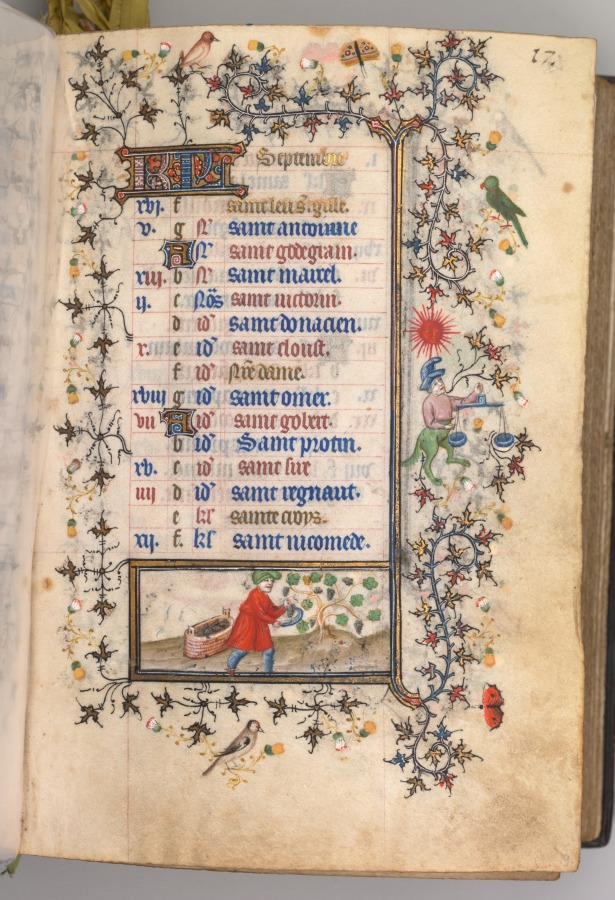 17.
KL Septembre
xvi. f saint leu s. gille.
v. g N saint antoinne
A N saint godegrain.
xiii. b N saint marcel.
ii. c Nōs saint victorin.
d id' saint donacien.
x. e id' saint cloust.
f id' N̄re dame.
xviii g id' saint omer.
vii A id' saint gobert.
b id' Saint protin.
xv. c id' saint sire
iiii d id' saint regnaut.
e kl sainte croys.
xij. f. kl saint nicomede.